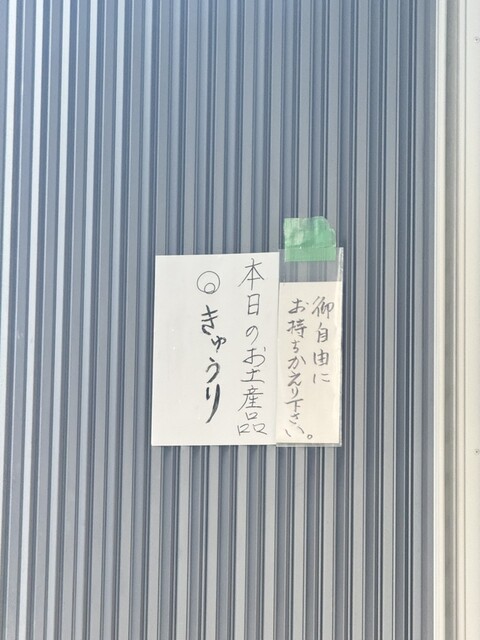 御自由に
お持ちかえり下さい。
本日のお土産品
◎きゅうり